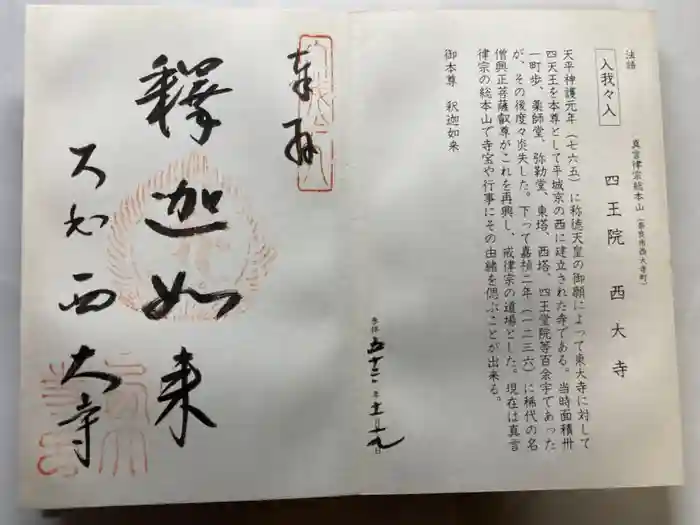 法語
入我々入
真言律宗総本山（奈良市西大寺町）
四王院　西大寺
天平神護元年（七六五）に称徳天皇の御願によって東大寺に対して
四天王を本尊として平城京の西に建立された寺である。当時面積卅
一町歩、薬師堂、弥勒堂、東塔、西塔、四王堂院等百余宇であった
が、その後度々炎失した。下って嘉禎二年（一二三六）に稀代の名
僧興正菩薩叡尊がこれを再興し、戒律宗の道場とした。現在は真言
律宗の総本山で寺宝や行事にその由緒を偲ぶことが出来る。
御本尊　釈迦如来
参拝 五十三年十一月十九日
奉拝
釋迦如来
西大寺